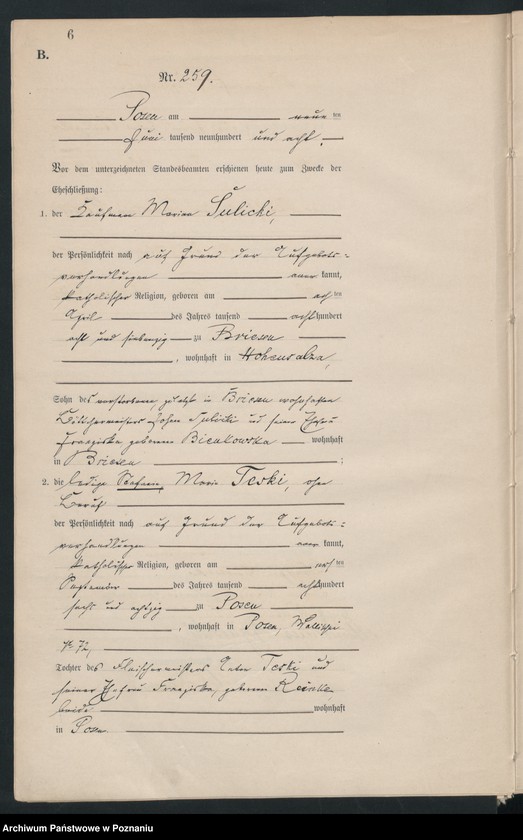 6
B.
Nr. 259.
Posen am neunten
Juni tausend neunhundert und acht.
Vor dem unterzeichneten Standesbeamten erschienen heute zum Zwecke der
Eheschließung:
1. der Kaufmann Marian Sulicki,
der Persönlichkeit nach auf Grund der Aufgebots=
verhandlungen kannt,
katholischer Religion, geboren am ten
April des Jahres tausend achthundert
acht und siebenzig zu Briesen
, wohnhaft in Hohensalza,
Sohn des verstorbenen, zuletzt in Briesen wohnhaften
Johann Sulicki und seiner Ehefrau
Franziska geborenen wohnhaft
in Briesen ;
2. die ledige Marie Teski, ohne
Beruf
der Persönlichkeit nach auf Grund der Aufgebots=
verhandlungen kannt,
katholischer Religion, geboren am ten
September des Jahres tausend achthundert
sechs und achtzig zu Posen
, wohnhaft in Posen, Wallischei
№ 72,
Tochter des Fleischermeisters Anton Teski und
seiner Ehefrau Franziska, geborenen
beide wohnhaft
in Posen
Archiwum Państwowe w Poznaniu